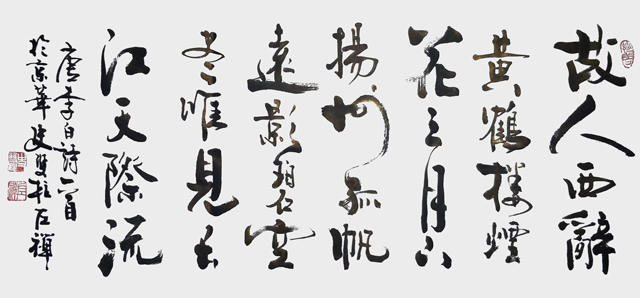 故人西辭
黄鶴樓煙
花三月下
揚州孤帆
遠影碧空
尽唯見長
江天際流
唐李白詩一首
於京華